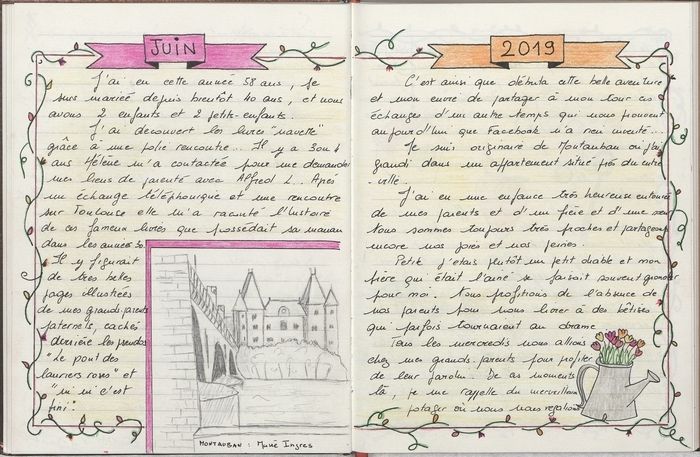 JUIN
J'ai eu cette année 58 ans, je
suis mariée depuis bientôt 40 ans, et nous
avons 2 enfants et 2 petits-enfants.
J'ai découvert les livres "navette"
grâce à une jolie rencontre... Il y a 3 ou 4
ans Hélène m'a contactée pour me demander
mes liens de parenté avec Alfred L... Après
un échange téléphonique et une rencontre
sur Toulouse elle m'a raconté l'histoire
de ces fameux livres que possédait sa maman
dans les années 50.
Il y figurait
de très belles
pages illustrées
de mes grands-parents
paternels, cachés
derrière les pseudos
"Le pont des
lauriers roses" et
"ni ni c'est
fini".
MONTAUBAN : Musée Ingres
2019
C'est ainsi que débuta cette belle aventure
et mon envie de partager à mon tour ces
échanges d'un autre temps qui nous prouvent
aujourd'hui que Facebook n'a rien inventé...
Je suis originaire de Montauban où j'ai
grandi dans un appartement situé près du centre
-ville.
J'ai eu une enfance très heureuse entourée
de mes parents et d'un frère et d'une sœur
Nous sommes toujours très proches et partageons
encore nos joies et nos peines.
Petite j'étais plutôt un petit diable et mon
frère qui était l'aîné se faisait souvent gronder
pour moi. Nous profitions de l'absence de
nos parents pour nous livrer à des bêtises
qui parfois tournaient au drame.
Tous les mercredis nous allions
chez mes grands-parents pour profiter
de leur jardin. De ces moments
là, je me rappelle du merveilleux
potager où nous nous régalions